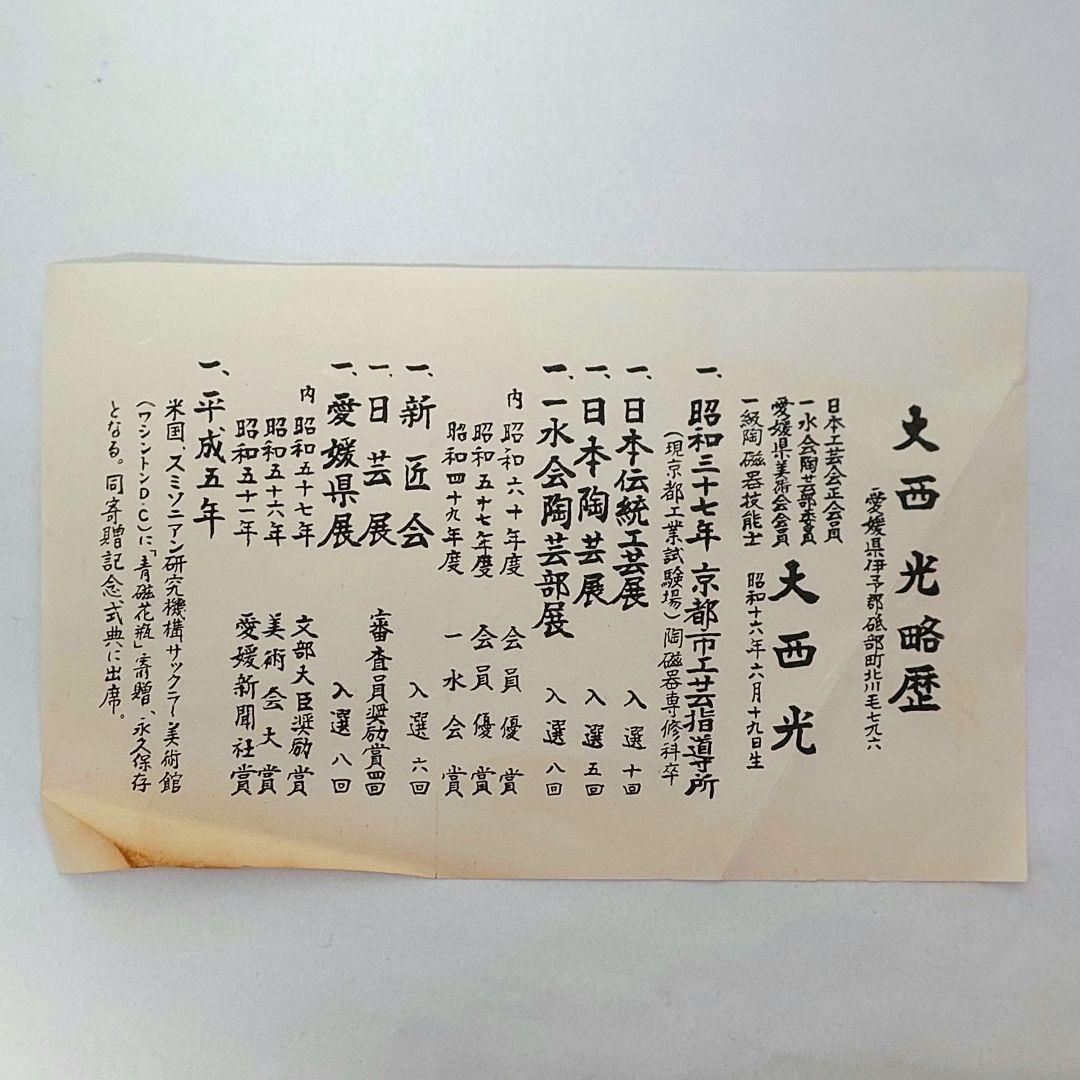 大西光略歴
愛媛県伊予郡砥部町北川毛七九六
日本工芸会正会員
一水会陶芸部委員
愛媛県美術会会員
一級陶磁器技能士
大西光
昭和十六年六月十九日生
一、昭和三十七年 京都市工芸指導所
(現京都工業試験場)陶磁器専修科卒
一、日本伝統工芸展 入選 十回
一、日本陶芸展 入選 五回
一、一水会陶芸部展 入選 八回
内 昭和六十年度 会員優賞
昭和五十七年度 会員優賞
昭和四十九年度 一水会賞
一、新匠会 入選 六回
一、日芸展 審査員奨励賞四回
一、愛媛県展 入選 八回
内 昭和五十七年 文部大臣奨励賞
昭和五十六年 美術会大賞
昭和五十一年 愛媛新聞社賞
一、平成五年
米国、スミソニアン研究機構サックラー美術館
(ワシントンD・C)に「青磁花瓶」寄贈、永久保存
となる。同寄贈記念式典に出席。